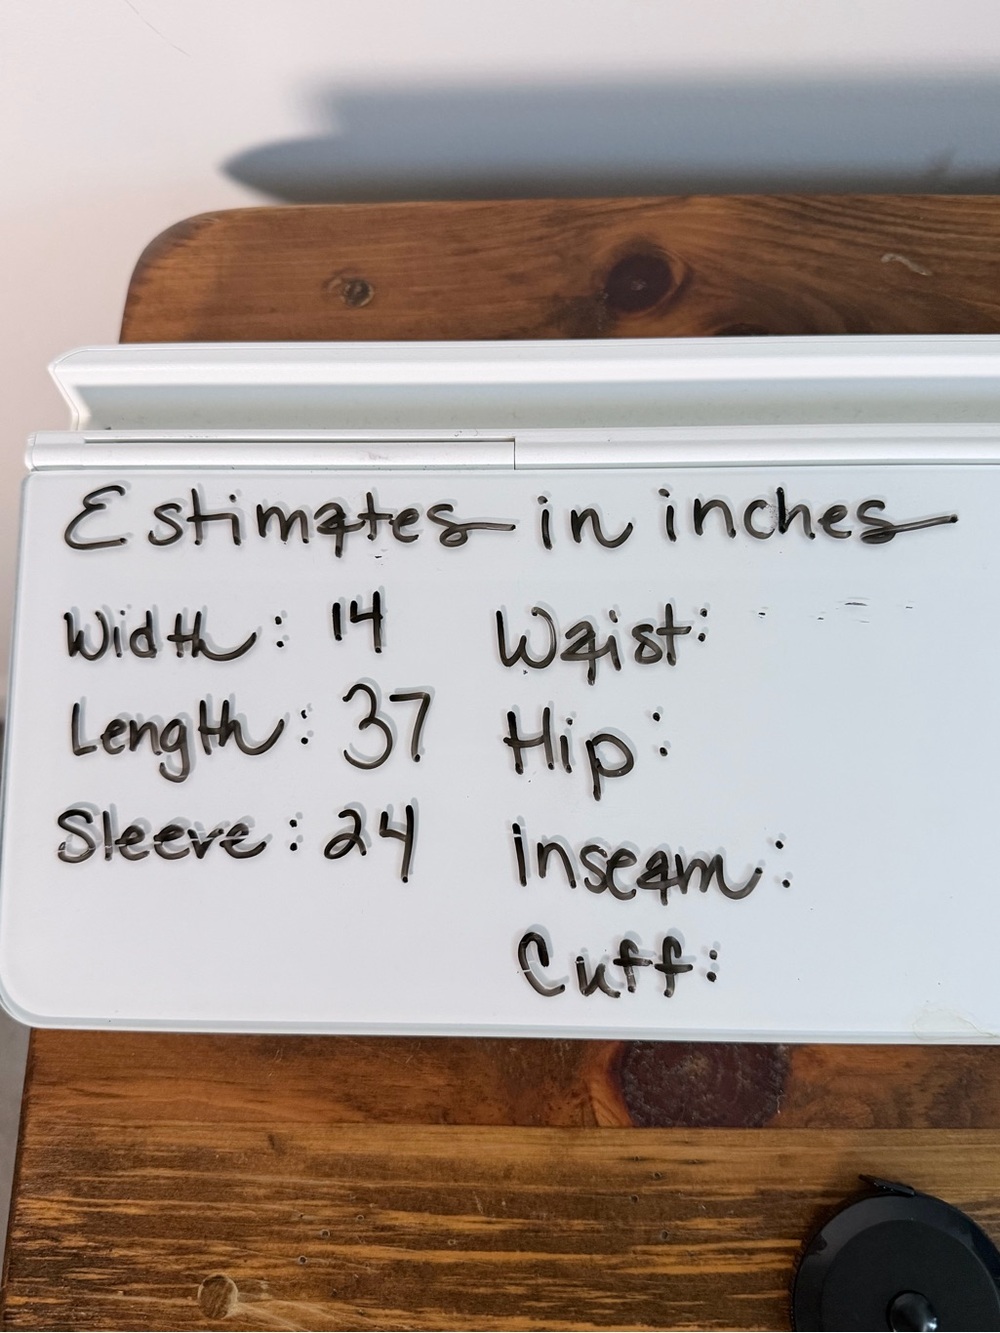 Estimates in inches
Width: 14
Length: 37
Sleeve: 24
Waist:
Hip:
Inseam:
Cuff: